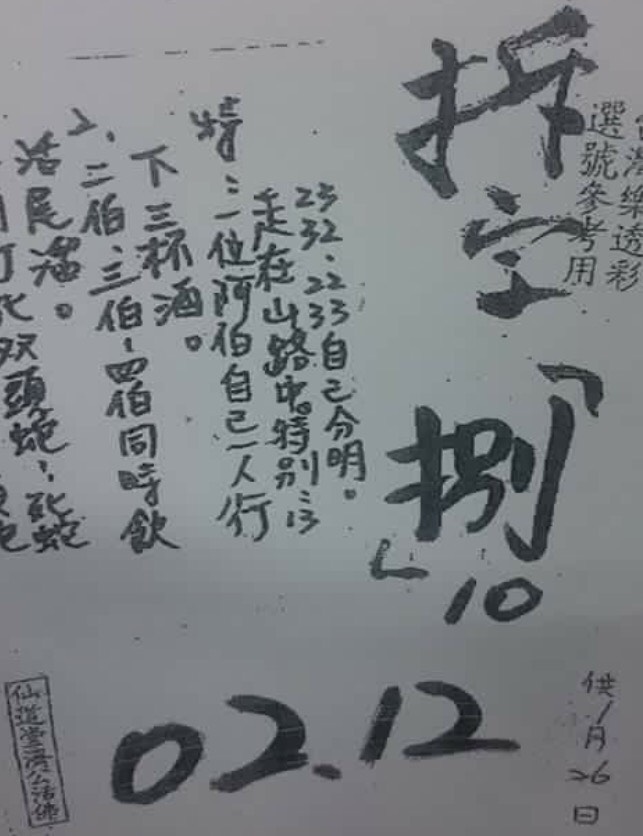 台灣樂透彩
選號參考用
拆字「捌」
10
打死双頭蛇、死蛇
活尾溜。
2、二伯、三伯、四伯同時飲
下三杯酒。
特:二位阿伯自己一人行
走在山路中特別:13
23 32、22 33自己分明。
02.12
供1月26日
仙道堂濟公活佛